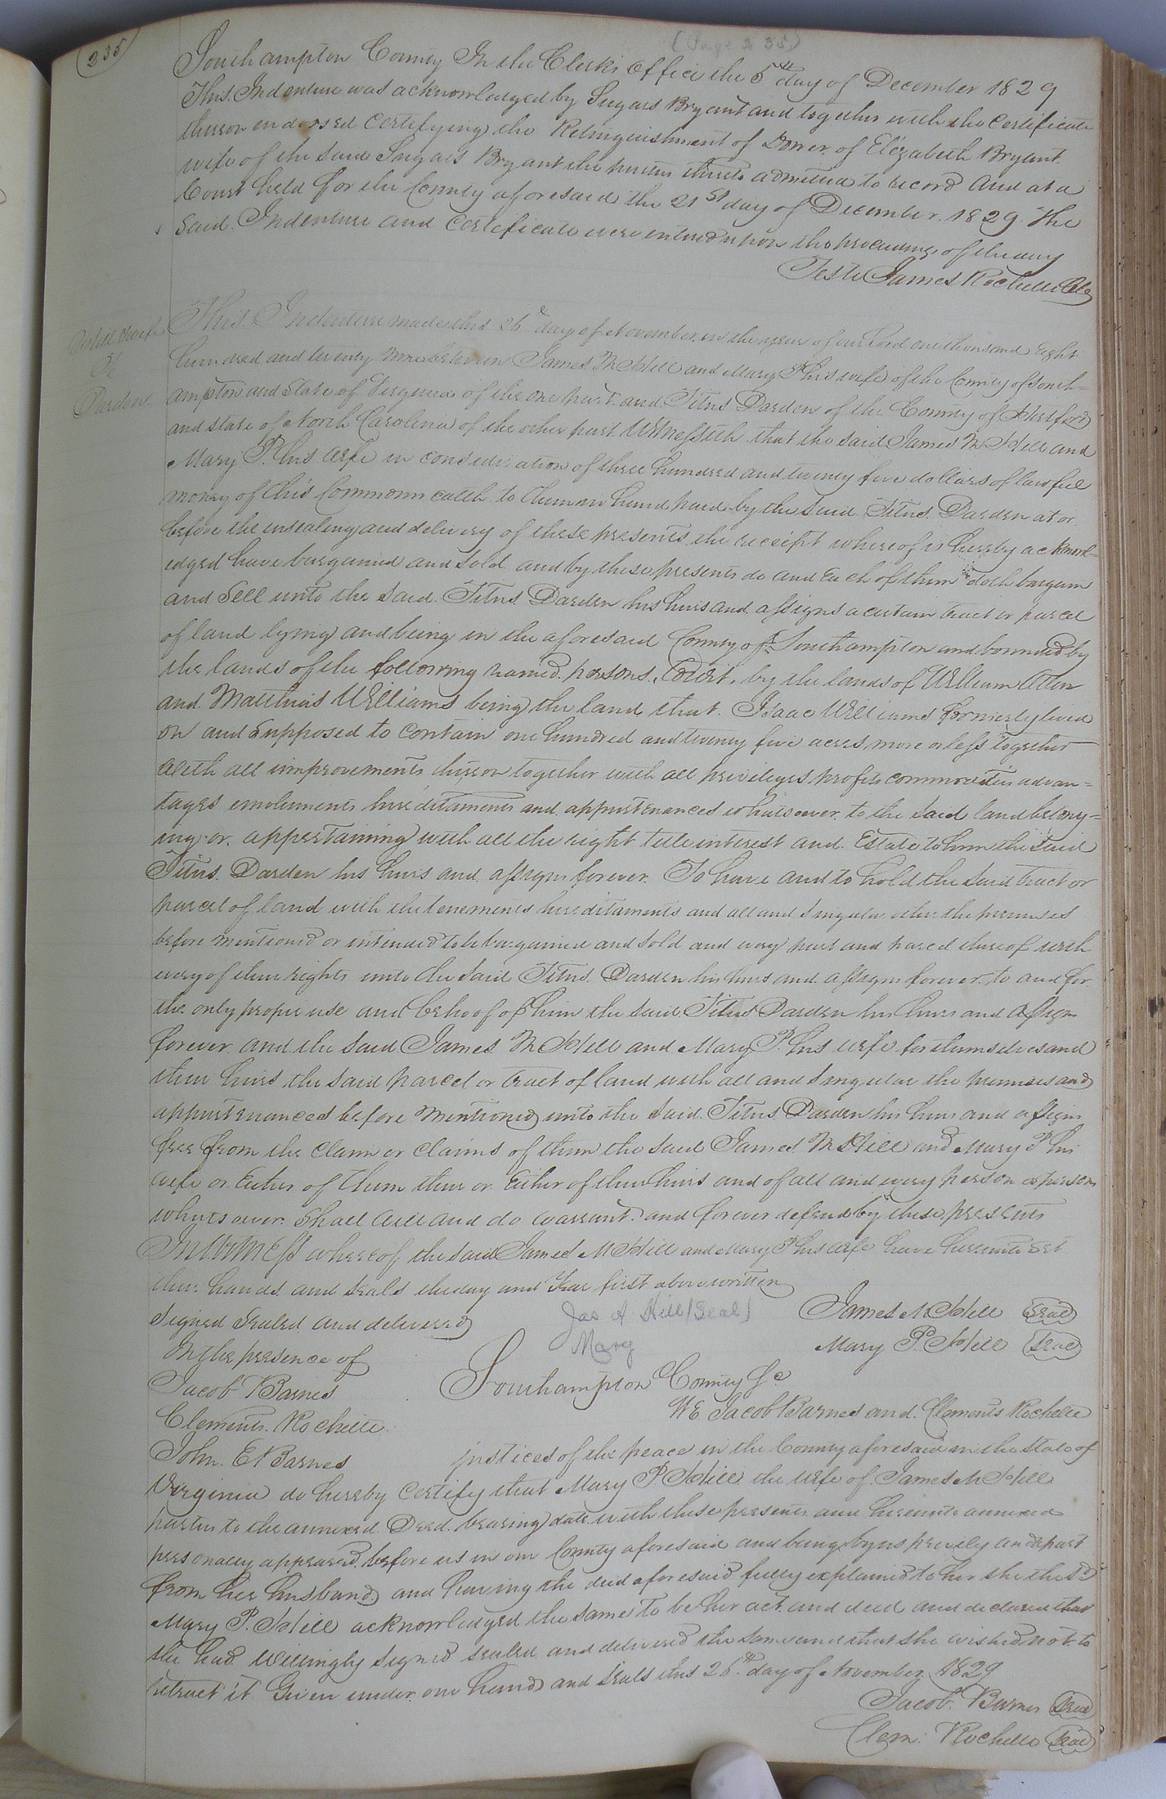 235
(Page 235)
Southampton County In the Clerk's Office the 5th day of December 1829
This Indenture was acknowledged by Sugars Bryant and together with the Certificate
thereon endorsed Certifying the Relinquishment of Dower of Elizabeth Bryant
wife of the said Sugars Bryant the parties thereto admitted to record And at a
Court held for the County aforesaid the 21st day of December 1829 The
said Indenture and Certificate were entered upon the proceedings of the day
Teste James Rochelle Clk
Hill & wife
To
Darden
This Indenture made this 26th day of November in the year of our Lord one thousand Eight
hundred and twenty nine between James M Hill and Mary P his wife of the County of South-
ampton and State of Virginia of the one part and Titus Darden of the County of Hertford
and state of North Carolina of the other part Witnesseth that the said James M Hill and
Mary P. his wife in consideration of three hundred and twenty five dollars of lawful
money of this Commonwealth to them in hand paid by the said Titus Darden at or
before the ensealing and delivery of these presents the receipt whereof is hereby acknowl
edged have bargained and sold and by these presents do and Each of them doth bargain
and Sell unto the said Titus Darden his heirs and assigns a certain tract or parcel
of land lying and being in the aforesaid County of Southampton and bounded by
the lands of the following named persons, Towit, by the lands of William
and Matthias Williams being the land that Isaac Williams formerly lived
on and supposed to contain one hundred and twenty five acres more or less together
with all improvements thereon together with all privileges profits commodities advan=
tages emoluments hereditaments and appurtenances whatsoever to the said land belong=
ing or appertaining with all the right title interest and Estate to him the said
Titus Darden his heirs and assigns forever. To have and to hold the said tract or
parcel of land with the tenements hereditaments and all and singular other the premises
before mentioned or intended to be bargained and sold and every part and parcel thereof with
every of their rights unto the said Titus Darden his heirs and assigns forever to and for
the only proper use and behoof of him the said Titus Darden his heirs and assigns
forever and the said James M Hill and Mary P. his wife for themselves and
their heirs the said parcel or tract of land with all and singular the premises and
appurtenances before mentioned unto the said Titus Darden his heirs and assigns
free from the claim or claims of them the said James M Hill and Mary P his
wife or Either of them their or Either of their heirs and of all and every person or persons
whatsoever shall will and do warrant and forever defend by these presents
In Witness whereof the said James M Hill and Mary P his wife have hereunto set
their hands and seals the day and Year first above written
Signed Sealed and delivered
James M Hill Seal
Jas A Hill (Seal)
Mary P. Hill Seal
Mary
In the presence of
Jacob Barnes
Southampton County Sc
Clements Rochelle
We Jacob Barnes and Clements Rochelle
John E Barnes
justices of the peace in the County aforesaid in the State of
Virginia do hereby certify that Mary P Hill the wife of James M Hill
parties to the annexed Deed bearing date with these presents and hereunto annexed
personally appeared before us in our County aforesaid and being by us privily and apart
from her husband and having the deed aforesaid fully explained to her she the sd
Mary P. Hill acknowledged the same to be her act and deed and declared that
she had willingly signed sealed and delivered the same and that she wished not to
retract it Given under our hands and seals this 26th day of November 1829
Jacob Barnes Seal
Clem: Rochelle Seal